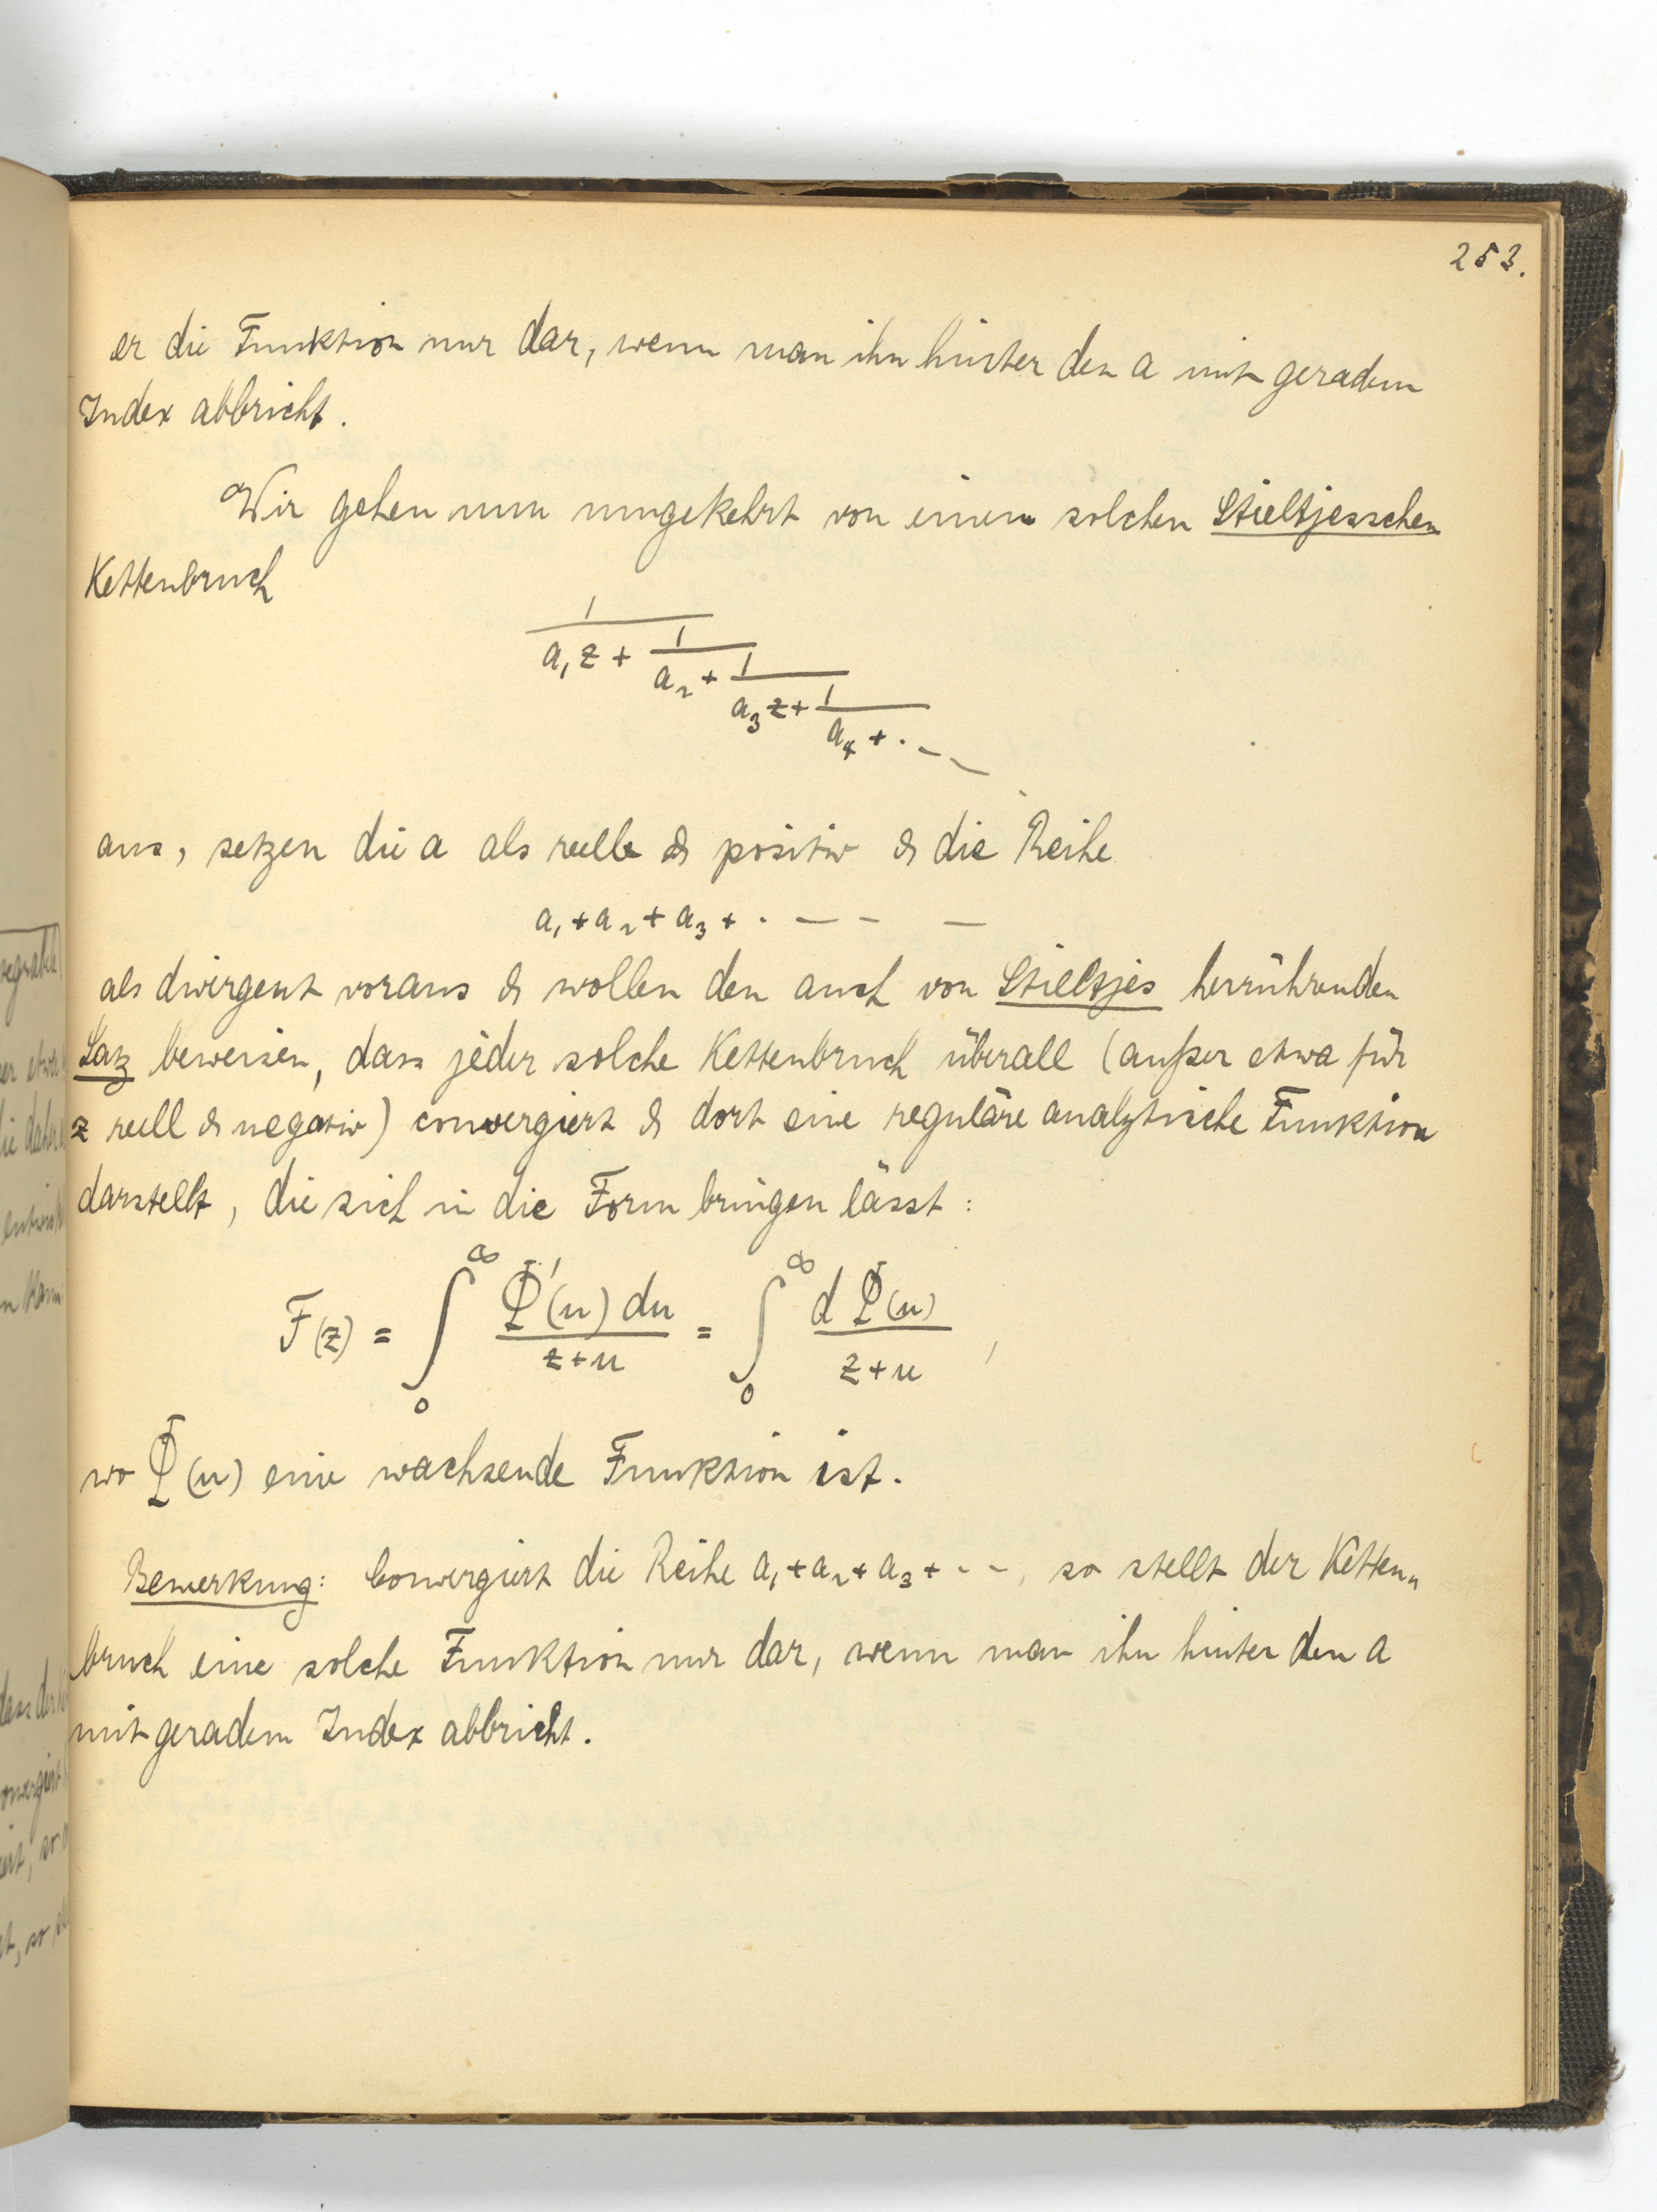 253.
er die Funktion nur dar, wenn man ihn hinter den a mit geradem
Index abbricht.
Wir gehen nun umgekehrt von einem solchen Stieltjesschen
Kettenbruch
1
a₁z + 1
a₂ + 1
a₃z + 1
a₄ + . – –
aus, setzen die a als reelle & positiv & die Reihe
a₁ + a₂ + a₃ + . – – –
als divergent voraus & wollen den auch von Stieltjes herrührenden
Satz beweisen, dass jeder solche Kettenbruch überall (außer etwa für
z reell & negativ) convergiert & dort eine reguläre analytische Funktion
darstellt, die sich in die Form bringen lässt:
F(z) = ∫₀^∞ Φ'(u) du / z+u = ∫₀^∞ d Φ(u) / z+u ,
wo Φ(u) eine wachsende Funktion ist.
Bemerkung: Convergiert die Reihe a₁ + a₂ + a₃ + . – –, so stellt der Ketten=
bruch eine solche Funktion nur dar, wenn man ihn hinter den a
mit geradem Index abbricht.